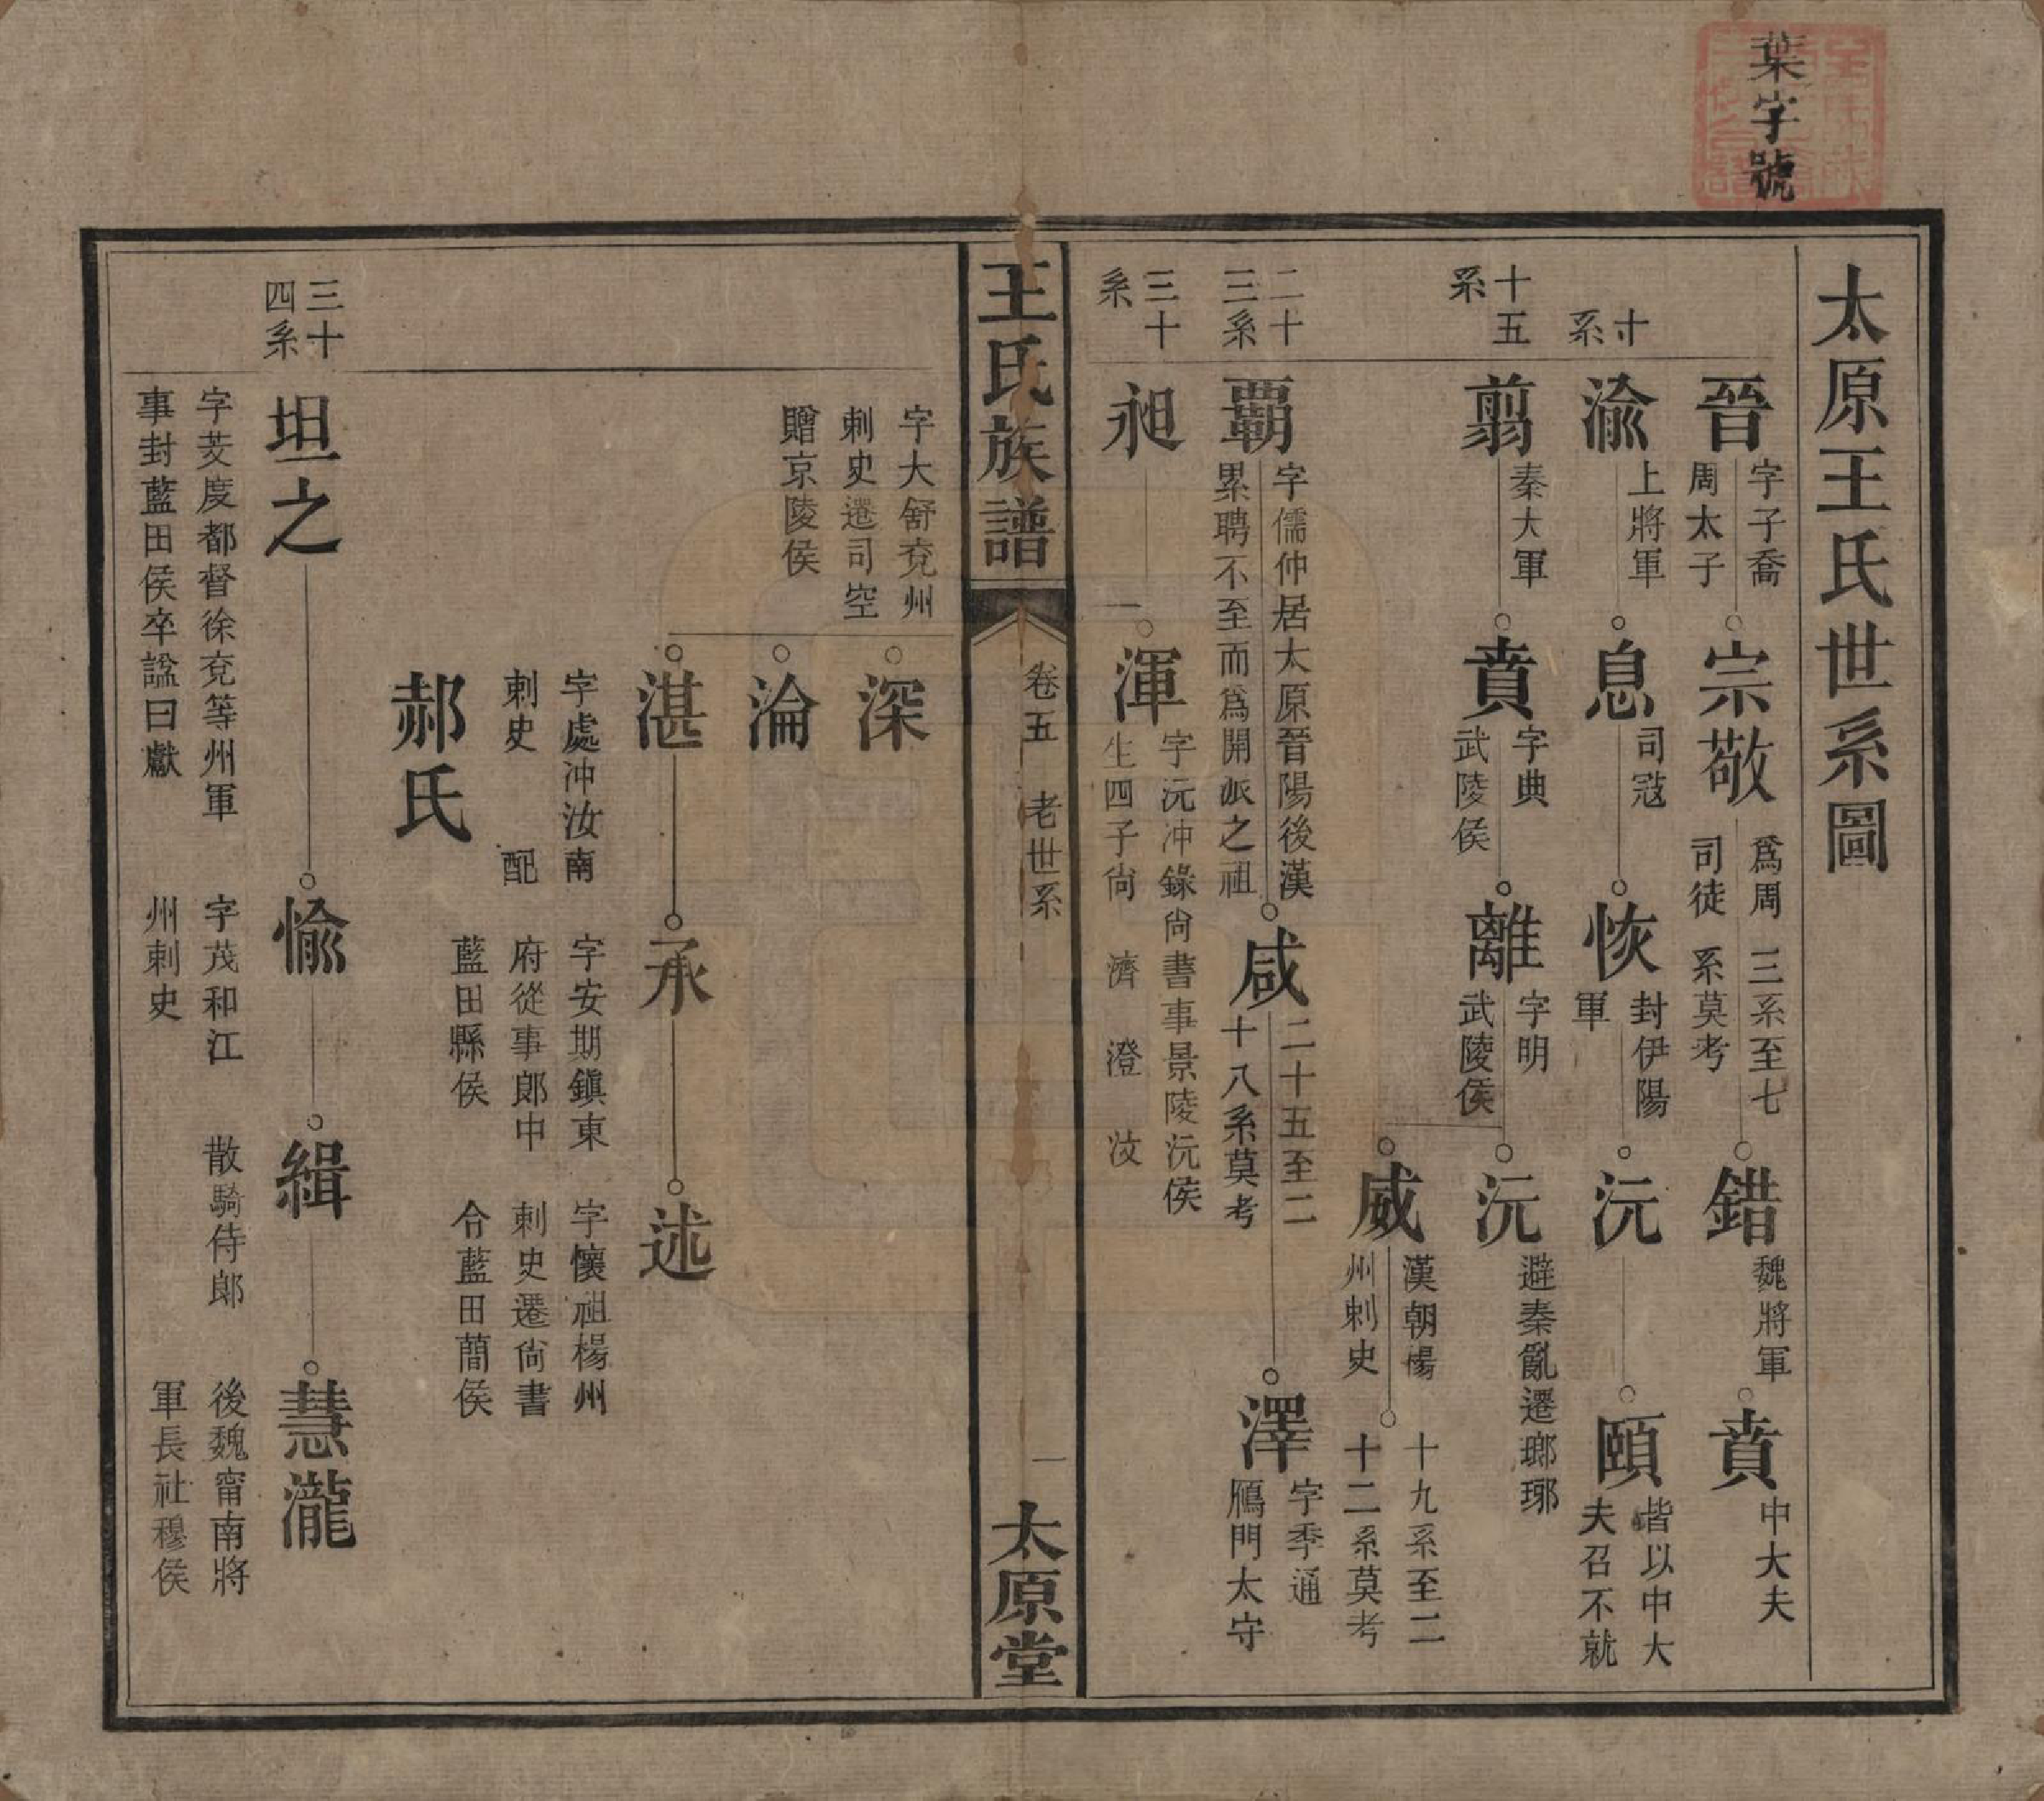 葉字號
太原王氏世系圖
晉
字子喬
周太子
宗敬
爲周
司徒
三系至七
系莫考
錯
魏將軍
賁
中大夫
十系
渝
上將軍
息
司寇
恢
封伊陽
軍
沅
頤
皆以中大
夫召不就
十五系
翦
秦大軍
賁
字典
武陵侯
離
字明
武陵侯
沅
避秦亂遷瑯琊
威
漢朝楊
州刺史
十九系至二
十二系莫考
二十三系
覇
字儒仲居太原晉陽後漢
累聘不至而爲開派之祖
咸
二十五至二
十八系莫考
澤
字季通
鴈門太守
三十系
昶
一
渾
字沅冲錄尙書事景陵沅侯
生四子尙 濟 澄 汶
王氏族譜
卷五 老世系
一
太原堂
字大舒兗州
刺史遷司空
贈京陵侯
深
淪
湛
字處冲汝南
刺史 配
郝氏
承
字安期鎭東
府從事郞中
藍田縣侯
述
字懷祖楊州
刺史遷尙書
令藍田簡侯
三十四系
坦之
字芠度都督徐兗等州軍
事封藍田侯卒諡曰獻
愉
字茂和江
州刺史
緝
散騎侍郞
慧瀧
後魏甯南將
軍長社穆侯